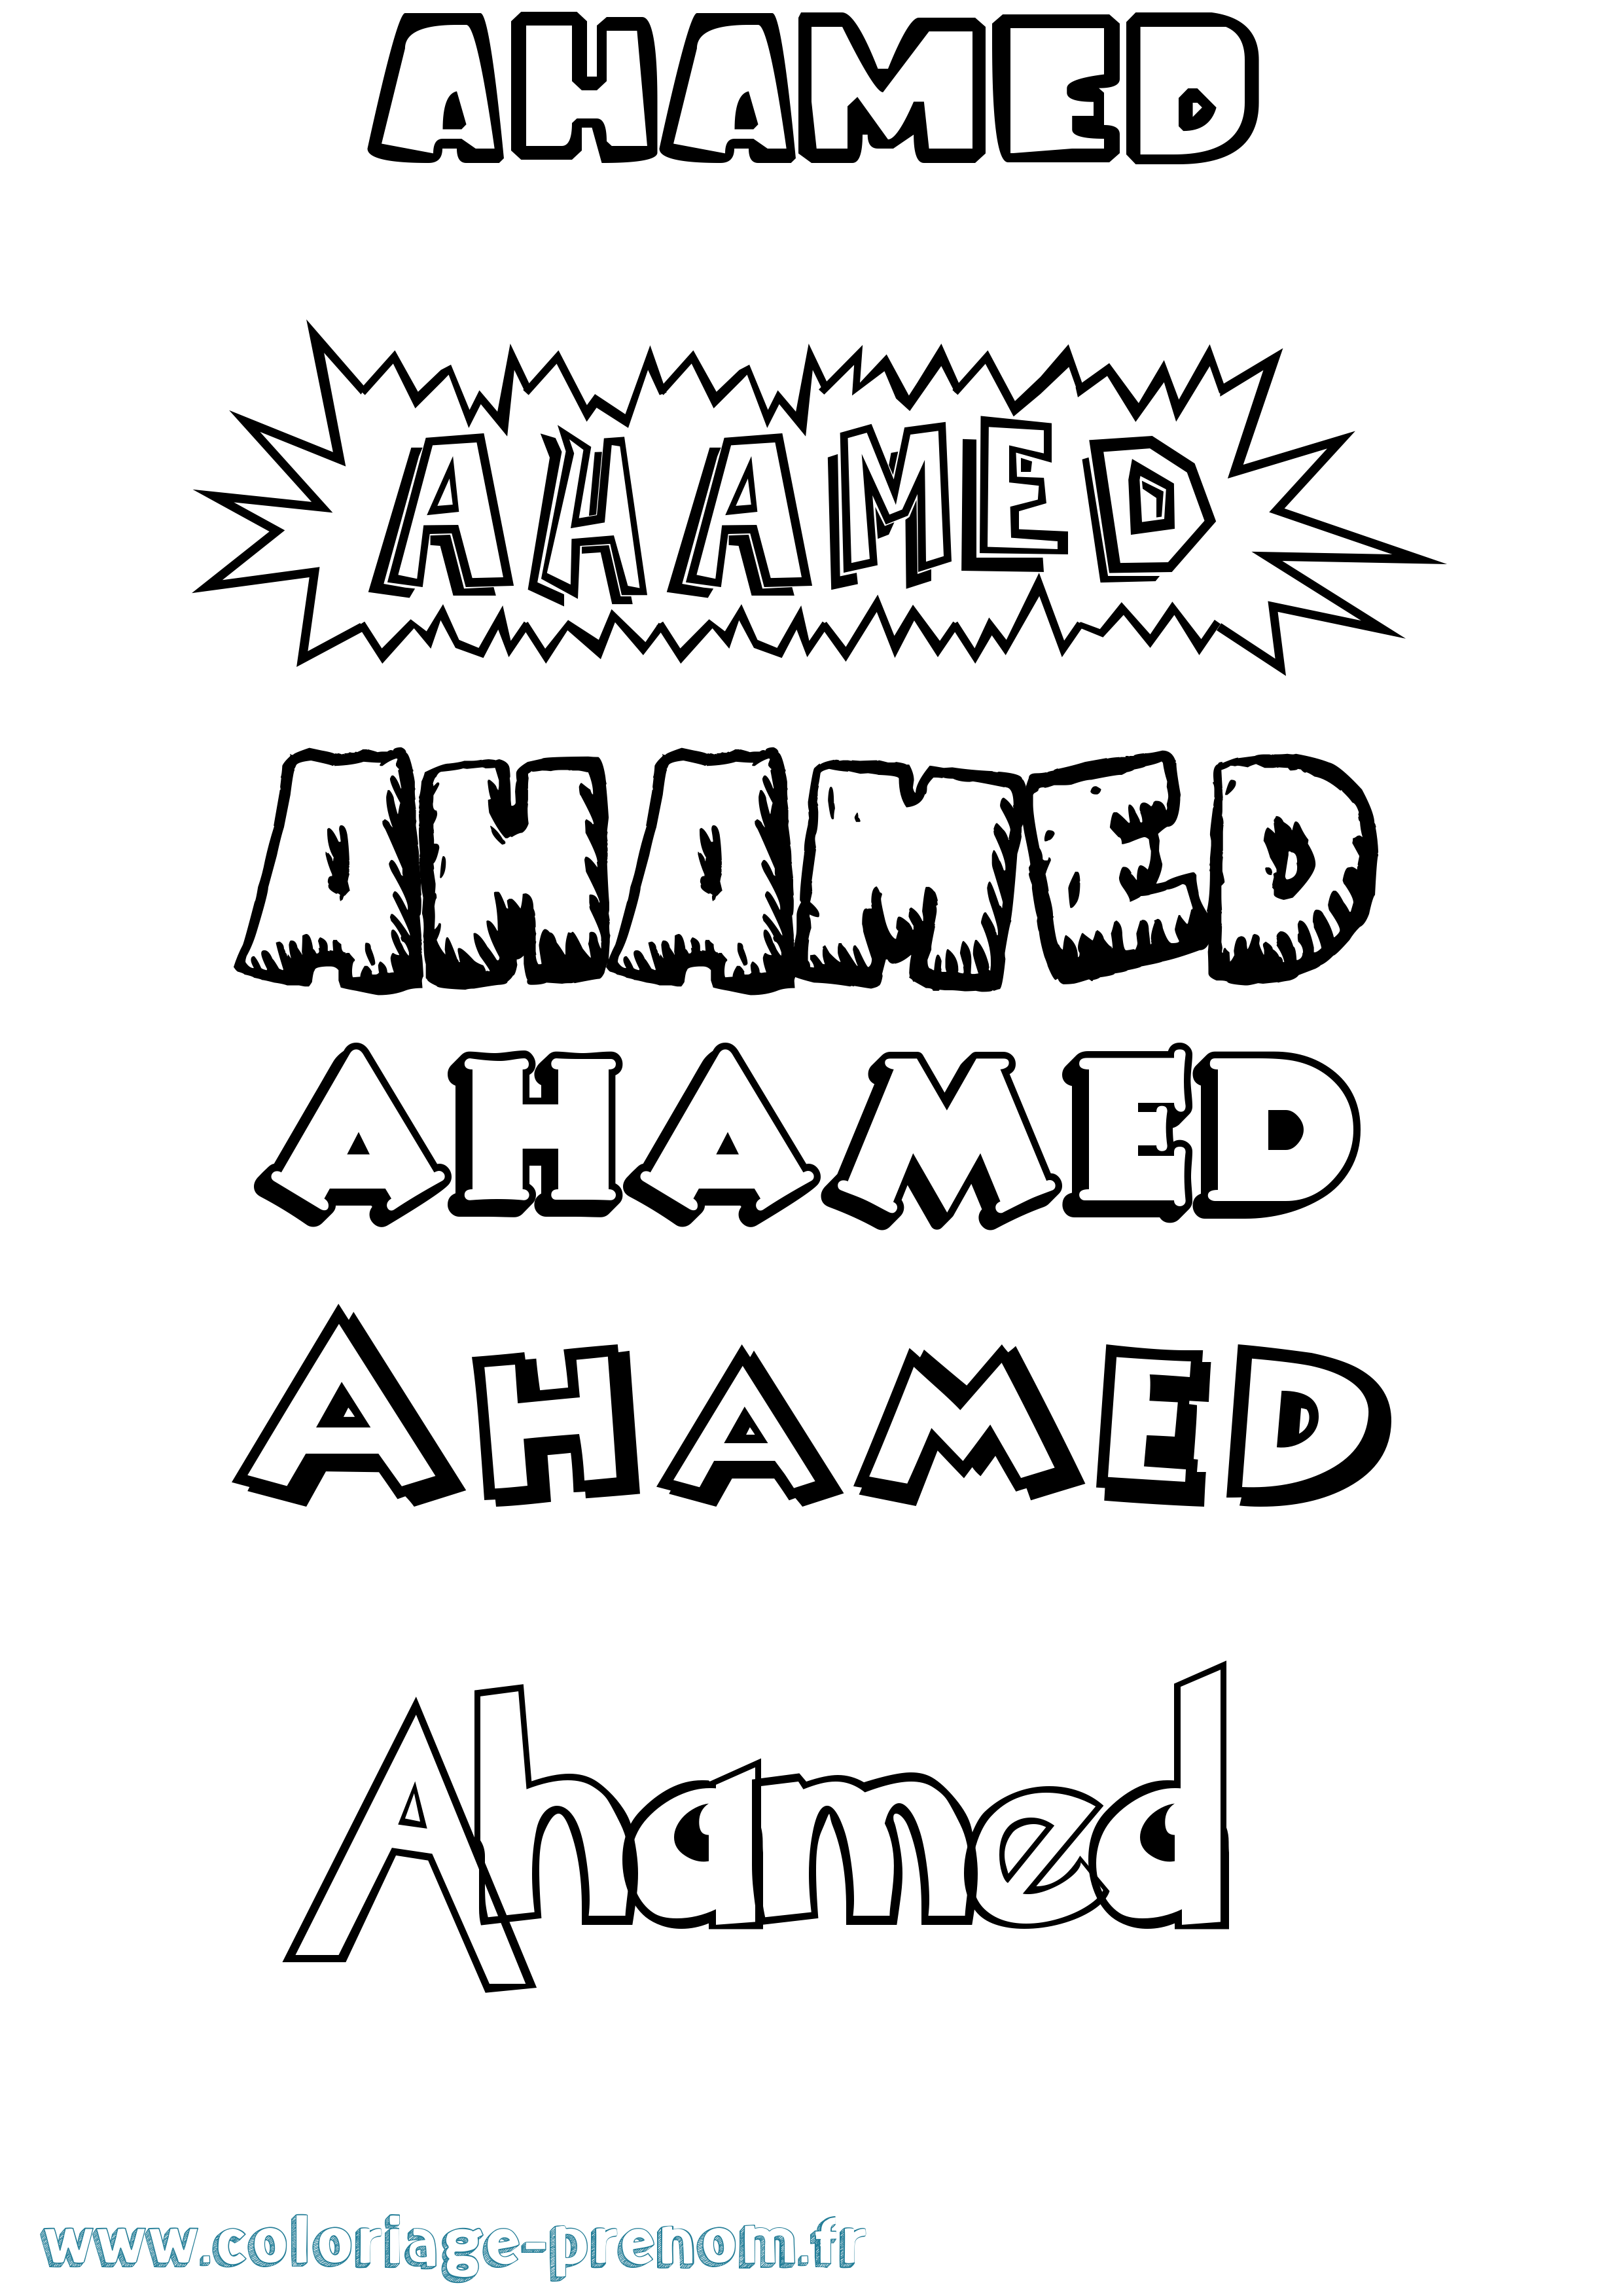 AHAMED
AHAMED
AHAMED
AHAMED
AHAMED
Ahamed
www.coloriage-prenom.fr